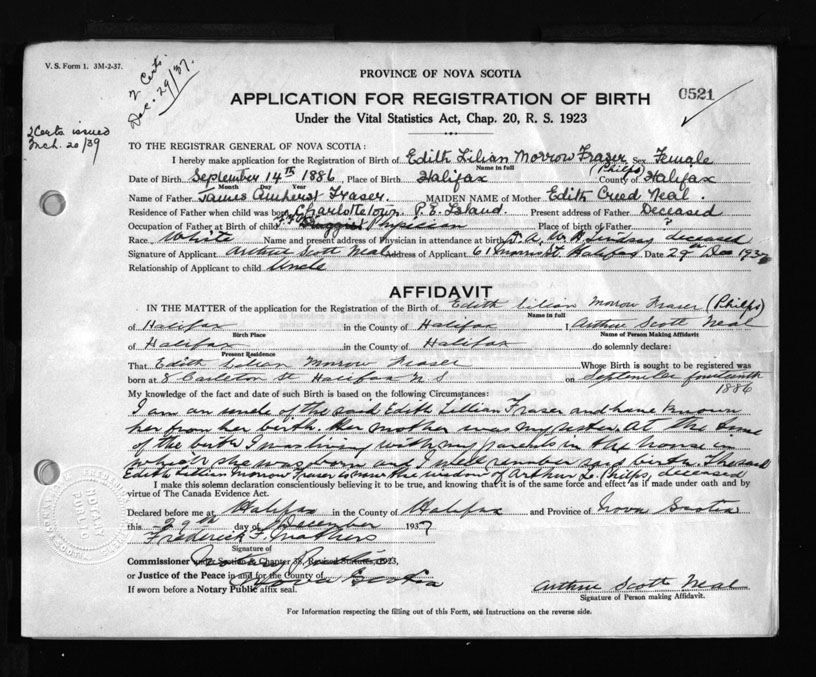 V. S. Form 1. 3M-2-37.
2 Certs.
Dec. 29/37.
PROVINCE OF NOVA SCOTIA
APPLICATION FOR REGISTRATION OF BIRTH
0521
Under the Vital Statistics Act, Chap. 20, R. S. 1923
2 Certs issued
Mch. 20/39
TO THE REGISTRAR GENERAL OF NOVA SCOTIA:
I hereby make application for the Registration of Birth of Edith Lilian Morrow Fraser Sex Female
Name in full (Philps)
Date of Birth September 14th 1886, Place of Birth Halifax County of Halifax
Month Day Year
Name of Father James Amherst Fraser. MAIDEN NAME of Mother Edith Creed Neal.
Residence of Father when child was born Charlottetown, P. E. Island. Present address of Father Deceased
Occupation of Father at Birth of child Druggist Physician Place of birth of Father
Race White Name and present address of Physician in attendance at birth D. A. W. H. Lindsay deceased
Signature of Applicant Arthur Scott Neal Address of Applicant 61 Morris St. Halifax, Date 29th Dec 1937
Relationship of Applicant to child Uncle
AFFIDAVIT
IN THE MATTER of the application for the Registration of the Birth of Edith Lilian Morrow Fraser (Philps)
Name in full
of Halifax in the County of Halifax I Arthur Scott Neal
Birth Place Name of Person Making Affidavit
of Halifax in the County of Halifax do solemnly declare:
Present Residence
That Edith Lilian Morrow Fraser Whose Birth is sought to be registered was
born at 8 Carleton St Halifax N S on September fourteenth
1886
My knowledge of the fact and date of such Birth is based on the following Circumstances:
I am an uncle of the said Edith Lillian Fraser and have known
her from her birth. Her mother was my sister. At the time
of the birth I was living with my parents in the house in
which she was born and I remember her birth. The said
Edith Lilian Morrow Fraser is now the widow of Arthur L. Philps, deceased
I make this solemn declaration conscientiously believing it to be true, and knowing that it is of the same force and effect as if made under oath and by
virtue of The Canada Evidence Act.
Declared before me at Halifax in the County of Halifax and Province of Nova Scotia
this 29th day of December 1937
Frederick F. Mathers
Signature of
Commissioner under Section Chapter 38, Revised Statutes, 1923,
or Justice of the Peace in and for the County of Nova Scotia
If sworn before a Notary Public affix seal.
Arthur Scott Neal
Signature of Person making Affidavit.
For Information respecting the filling out of this Form, see Instructions on the reverse side.